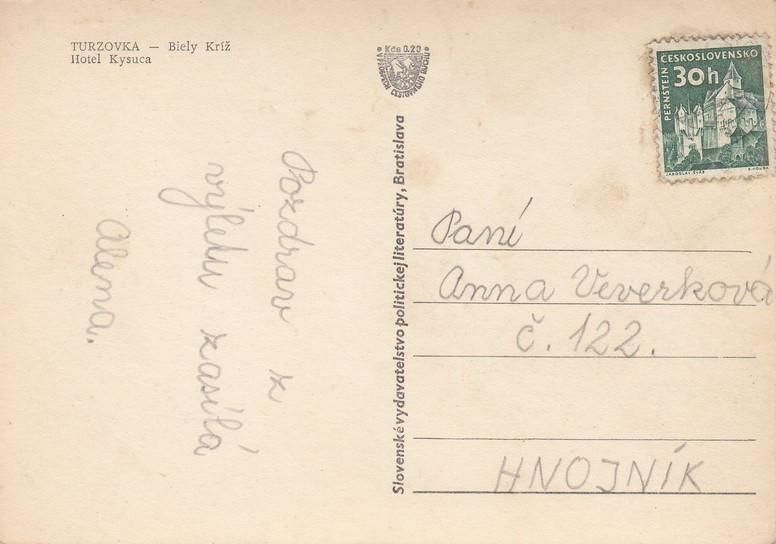 TURZOVKA — Biely Kríž
Hotel Kysuca
Kčs 0.20
Pozdrav z
výletu zasílá
Alena.
Slovenské vydavatelstvo politickej literatúry, Bratislava
ČESKOSLOVENSKO
30h
PERNŠTEJN
Paní
Anna Veverková
č. 122.
HNOJNÍK